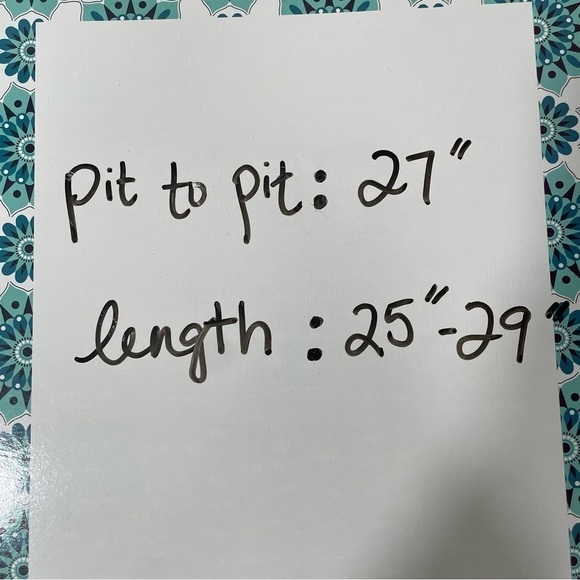 pit to pit: 27"
length : 25"-29"